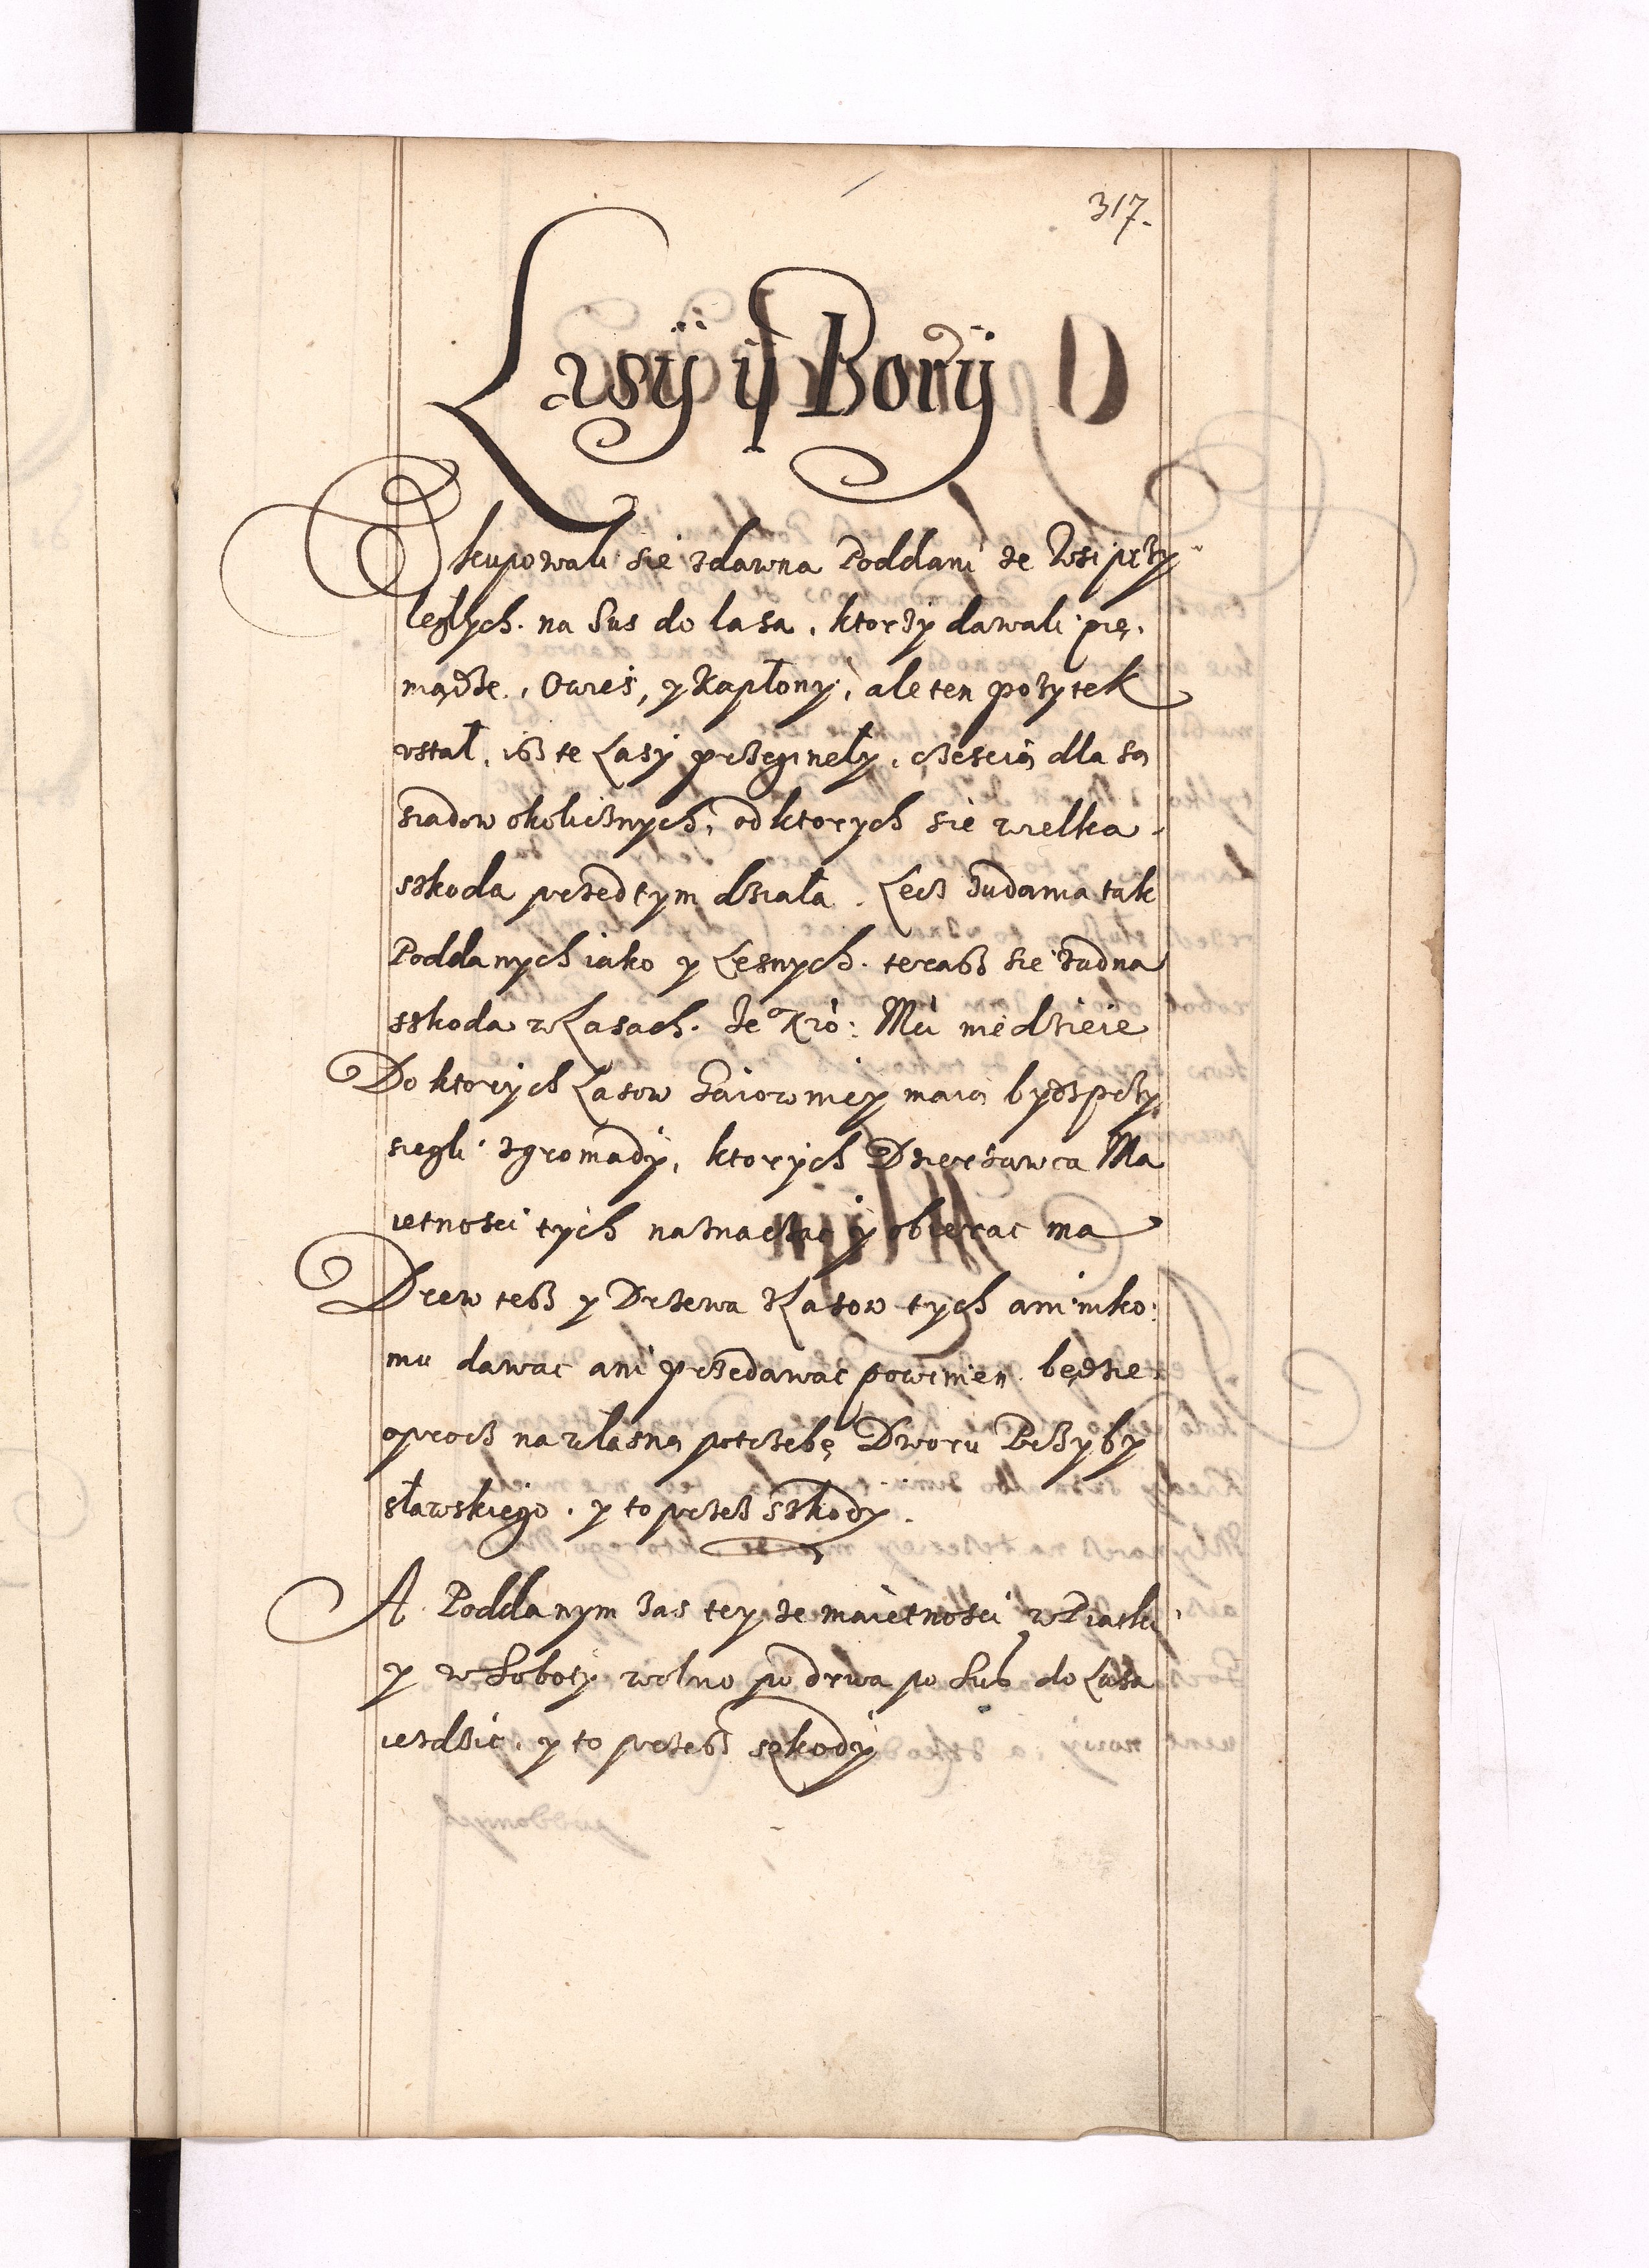 317.
Lasÿ ÿ Borÿ
Skupowali sie zdawna Poddani ze Wsi przy
leglych na Sus do lasa, ktorzy dawali pię,
niądze, Owies, y Kapłony, ale ten pozytek
vstał, isz te Lasy przeginely, czescią dla są
siadow okolicznych, od ktorych sie wielka
szkoda przedtym działa. Lecz zudania tak
Poddanych iako y Lesnych. terasz sie zudna
szkoda w Lasach. Je° Kro: Mći niedzieie
Do ktorych Lasow Gaiowniey maią bydz przy
siegli z gromady, ktorych Dzierzawca Ma
ietnosci tych naznaczac y obierac ma
Drew tesz y Drzewa z Lasow tych ani niko:
mu dawac ani przedawac powinien będzie
oprocz na własną potrzebę Dworu Przyby
sławskiego. y to przesz szkody.
A Poddanym zas tey ze maietnosci w Piatki
y w Soboty wolno po drwa po Sus do Lasa
iezdzic. y to przesz szkody